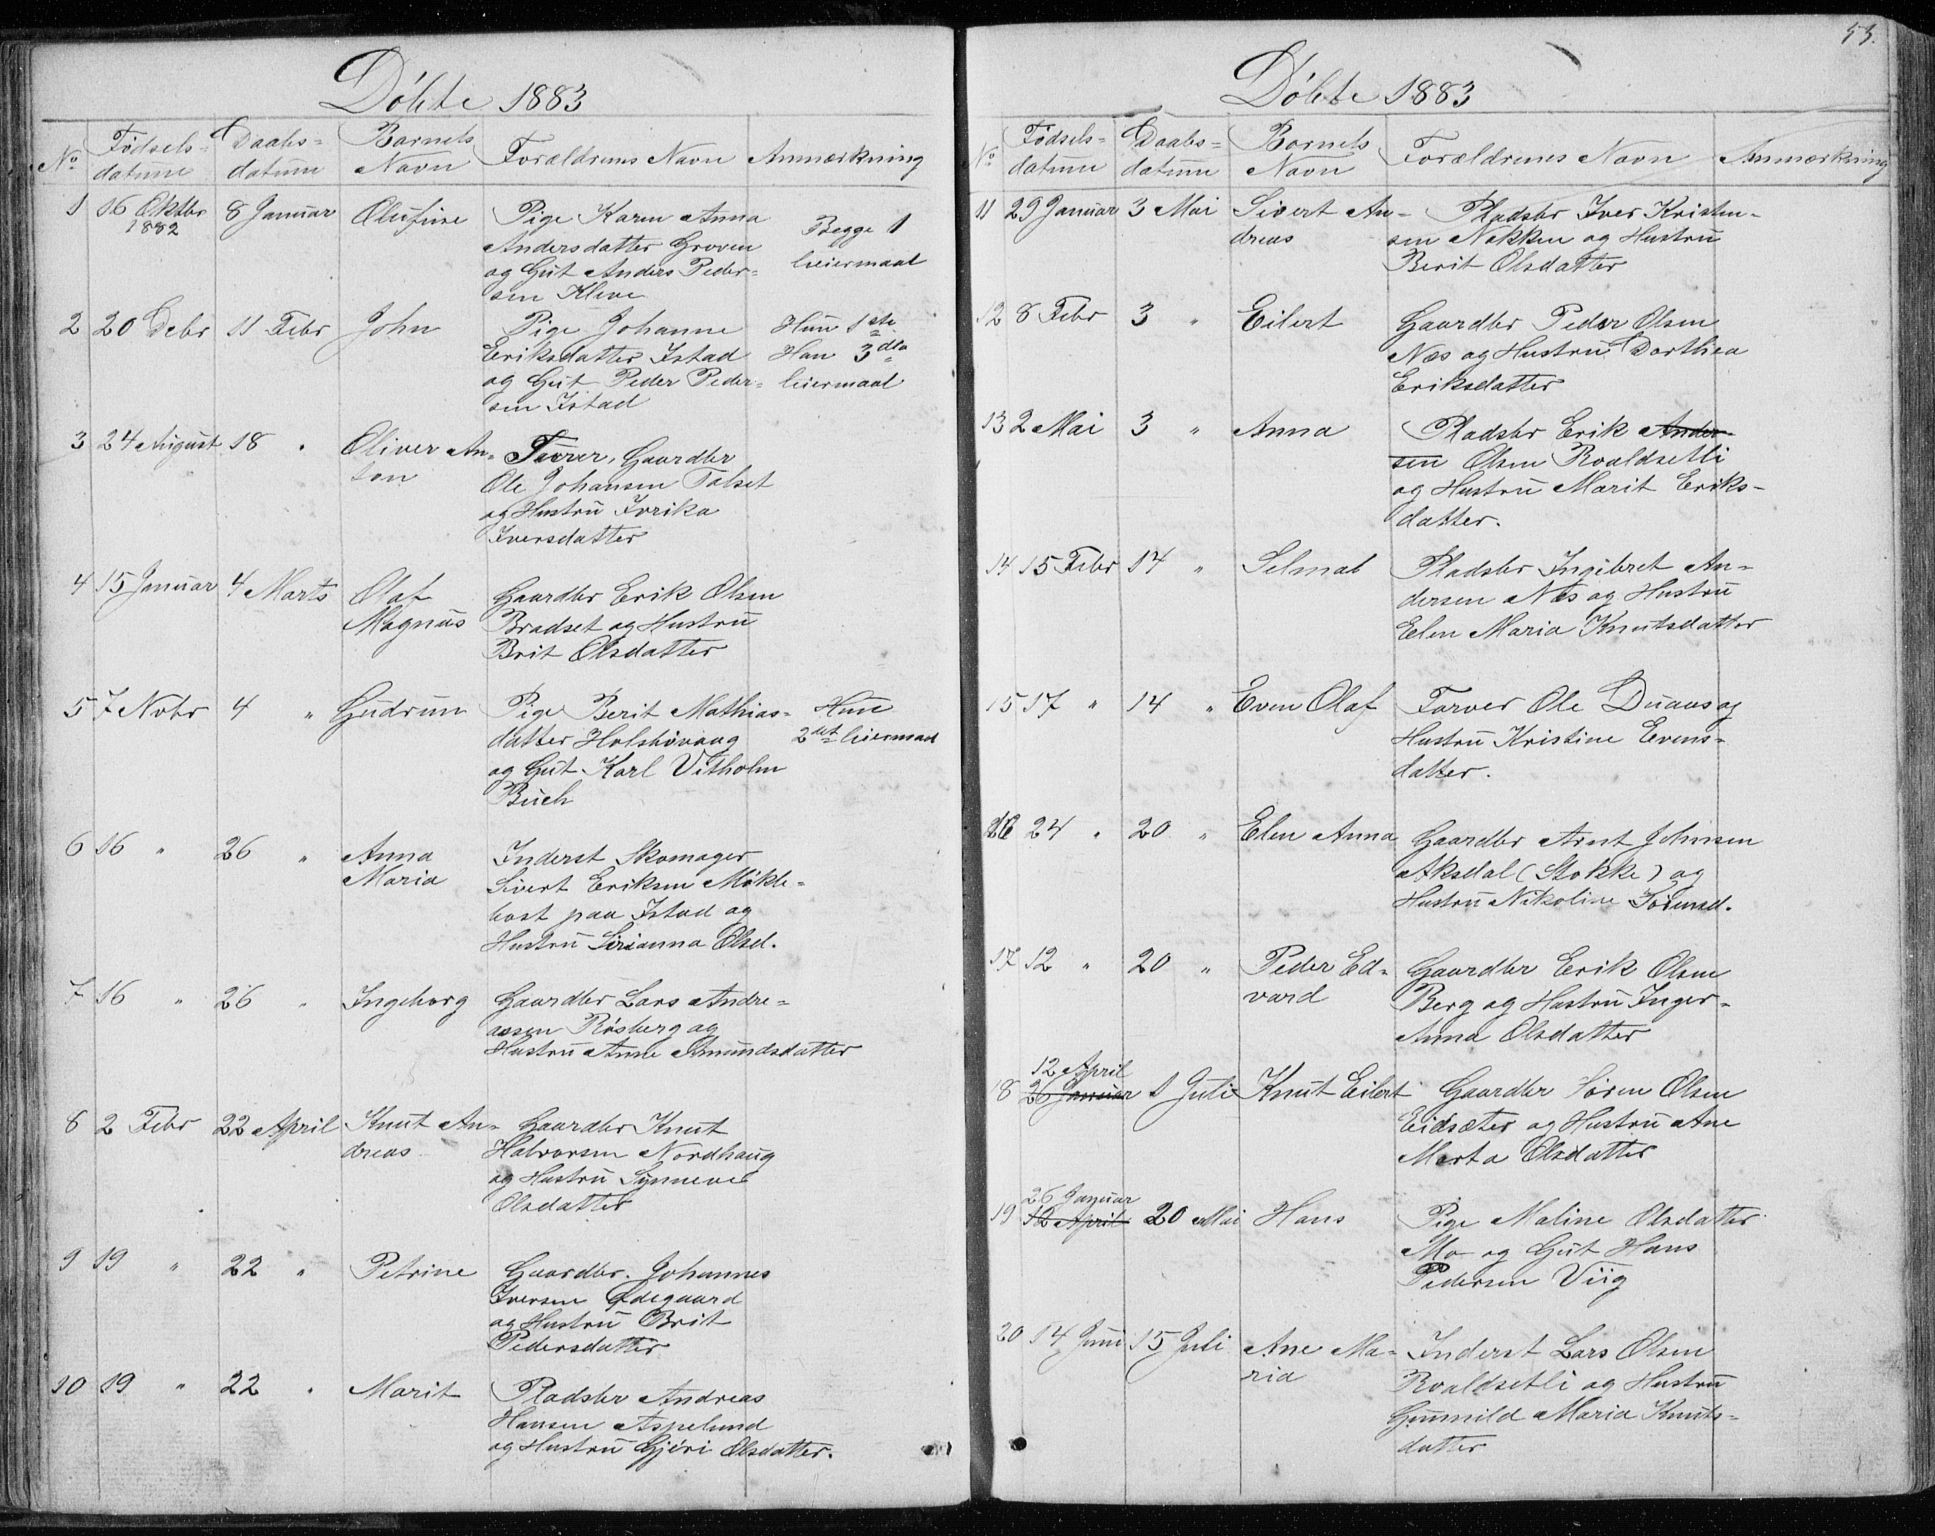 53.
Döbte 1883
No Fødsels-datum Daabs-datum Barnets Navn Forældrenes Navn Anmærkning
1 16 Oktbr 1882 8 Januar Olufine Pige Karen Anna
Andersdatter Groven Begge 1
og Gut Anders Peder- leiermaal
sen Kleve
2 20 Debr 11 Febr John Pige Johanne Hun 1ste
Eriksdatter Istad Han 3die
og Gut Peder Peder- leiermaal
sen Istad
3 24 August 18 " Oliver An- Farver, Gaardbr
ton Ole Johansen Talset
og Hustru Ivrika
Iversdatter
4 15 Januar 4 Marts Olaf Gaardbr Erik Olsen
Magnus Bradset og Hustru
Brit Olsdatter
5 7 Nobr 4 " Gudrun Pige Berit Mathias- Hun
datter Holshövaag 2det leiermaal
og Gut Karl Vitholm
Buch
6 16 " 26 " Anna Inderst Skomager
Maria Sivert Eriksen Mökle-
bost paa Istad og
Hustru Sirianna Olsd.
7 16 " 26 " Ingeborg Gaardbr Lars Andre-
assen Rösberg og
Hustru Anne Amundsdatter
8 2 Febr 22 April Knut An- Gaardbr Knut
dreas Halvorsen Nordhaug
og Hustru Synneve
Olsdatter
9 19 " 22 " Petrine Gaardbr. Johannes
Iversen Ødegaard
og Hustru Brit
Pedersdatter
10 19 " 22 " Marit Pladsbr Andreas
Hansen Aspelund
og Hustru Gjöri Olsdatter.
Döbte 1883
No Fødsels-datum Daabs-datum Barnets Navn Forældrenes Navn Anmærkning
11 29 Januar 3 Mai Sivert An- Pladsbr Iver Kristen-
dreas sen Nekken og Hustru
Berit Olsdatter
12 8 Febr 3 " Eilert Gaardbr Peder Olsen
Næs og Hustru Dorthea
Eriksdatter
13 2 Mai 3 " Anna Pladsbr Erik Ander-
sen Olsen Roaldsetli
og Hustru Marit Eriks-
datter.
14 15 Febr 14 " Selma Pladsbr Ingebret An-
dersen Næs og Hustru
Elen Maria Knutsdatter
15 17 " 14 " Even Olaf Farver Ole Duaas og
Hustru Kristine Evens-
datter.
16 24 " 20 " Elen Anna Gaardbr Arnt Johnsen
Aksdal (Stokke) og
Hustru Nikoline
17 12 " 20 " Peder Ed- Gaardbr Erik Olsen
vard Berg og Hustru Inger-
Anna Olsdatter
12 April
18 26 Januar 1 Juli Knut Eilert Gaardbr Sören Olsen
Eidsæter og Hustru Ane
Marta Olsdatter
26 Januar
19 12 April 20 Mai Hans Pige Maline Olsdatter
Mo og Gut Hans
Pedersen Viig
20 14 Juni 15 Juli Ane Ma- Inderst Lars Olsen
ria Roaldsetli og Hustru
Gunnild Maria Knuts-
datter